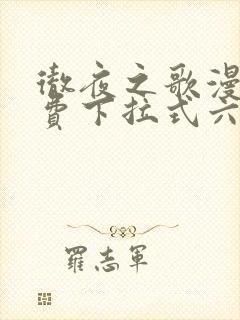 徹夜之歌漫
費下拉式六
羅志軍